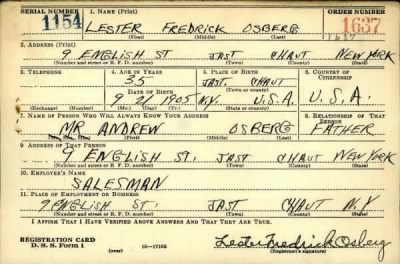 SERIAL NUMBER 1. NAME (Print) ORDER NUMBER
1154 LESTER FREDRICK OSBERG 1637
(First) (Middle) (Last)
2. ADDRESS (Print)
9 ENGLISH ST JAST CHAUT NEW YORK
(Number and street or R. F. D. number) (Town) (County) (State)
3. TELEPHONE 4. AGE IN YEARS 5. PLACE OF BIRTH 6. COUNTRY OF CITIZENSHIP
35 JAST. CHAUT
DATE OF BIRTH (Town) (County)
9 21 1905 N.Y. U.S.A. U.S.A.
(Exchange) (Number) (Mo.) (Day) (Yr.) (State) (Country)
7. NAME OF PERSON WHO WILL ALWAYS KNOW YOUR ADDRESS 8. RELATIONSHIP OF THAT PERSON
MR. ANDREW OSBERG FATHER
(Mr., Mrs., Miss) (First) (Middle) (Last)
9. ADDRESS OF THAT PERSON
9 ENGLISH ST. JAST CHAUT NEW YORK
(Number and street or R. F. D. number) (Town) (County) (State)
10. EMPLOYER'S NAME
SALESMAN
11. PLACE OF EMPLOYMENT OR BUSINESS
9 ENGLISH ST. JAST CHAUT N.Y
(Number and street or R. F. D. number) (Town) (County) (State)
I AFFIRM THAT I HAVE VERIFIED ABOVE ANSWERS AND THAT THEY ARE TRUE.
REGISTRATION CARD
D. S. S. Form 1 (over) 16—17105
Lester Fredrick Osberg
(Registrant's signature)